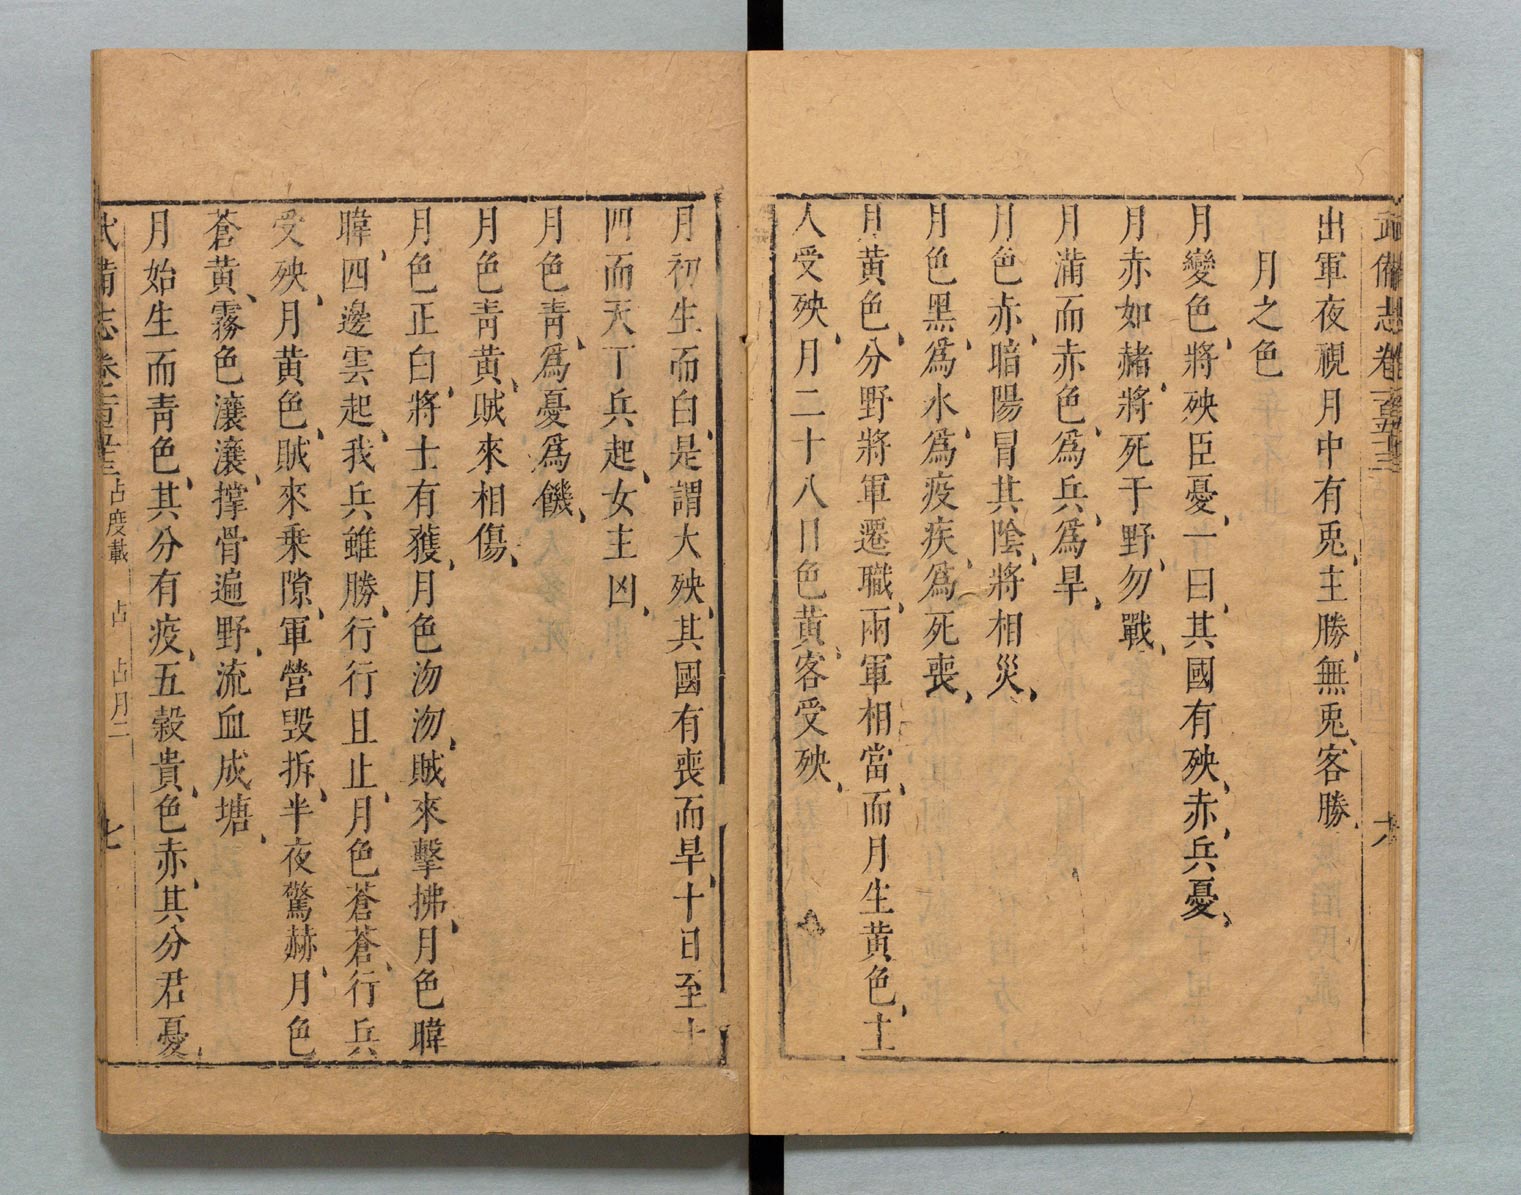 武備志卷一百五十三
六
出軍夜視月中有兎、主勝、無兎、客勝、
月之色
月變色、將殃臣憂、一曰、其國有殃、赤、兵憂、
月赤如赭、將死于野、勿戰、
月滿而赤色、爲兵、爲旱、
月色赤、暗陽冒其陰、將相災、
月色黑、爲水、爲疫疾、爲死喪、
月黃色、分野將軍遷職、兩軍相當、而月生黃色、土
人受殃、月二十八日色黃、客受殃、
月初生而白、是謂大殃、其國有喪而旱、十日至十
四而天下兵起、女主凶、
月色靑、爲憂爲饑、
月色靑黃、賊來相傷、
月色正白、將士有獲、月色沕沕、賊來擊拂、月色暐
暐、四邊雲起、我兵雖勝、行行且止、月色蒼蒼、行兵
受殃、月黃色、賊來乘隙、軍營毀拆、半夜驚赫、月色
蒼黃、霧色瀼瀼、撑骨遍野、流血成塘、
月始生而靑色、其分有疫、五穀貴、色赤、其分君憂、
武備志卷一百五十三 占度載 占 占月二
七